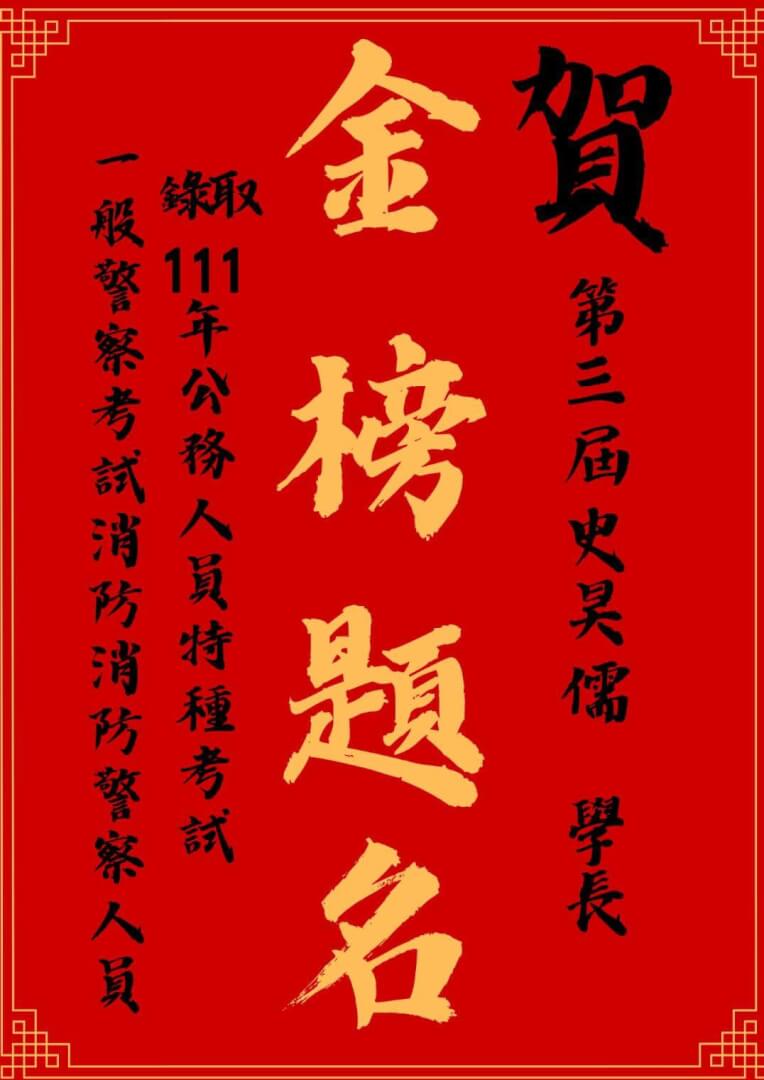 賀
第三屆史昊儒 學長
金榜題名
錄取
111年公務人員特種考試
一般警察考試消防消防警察人員